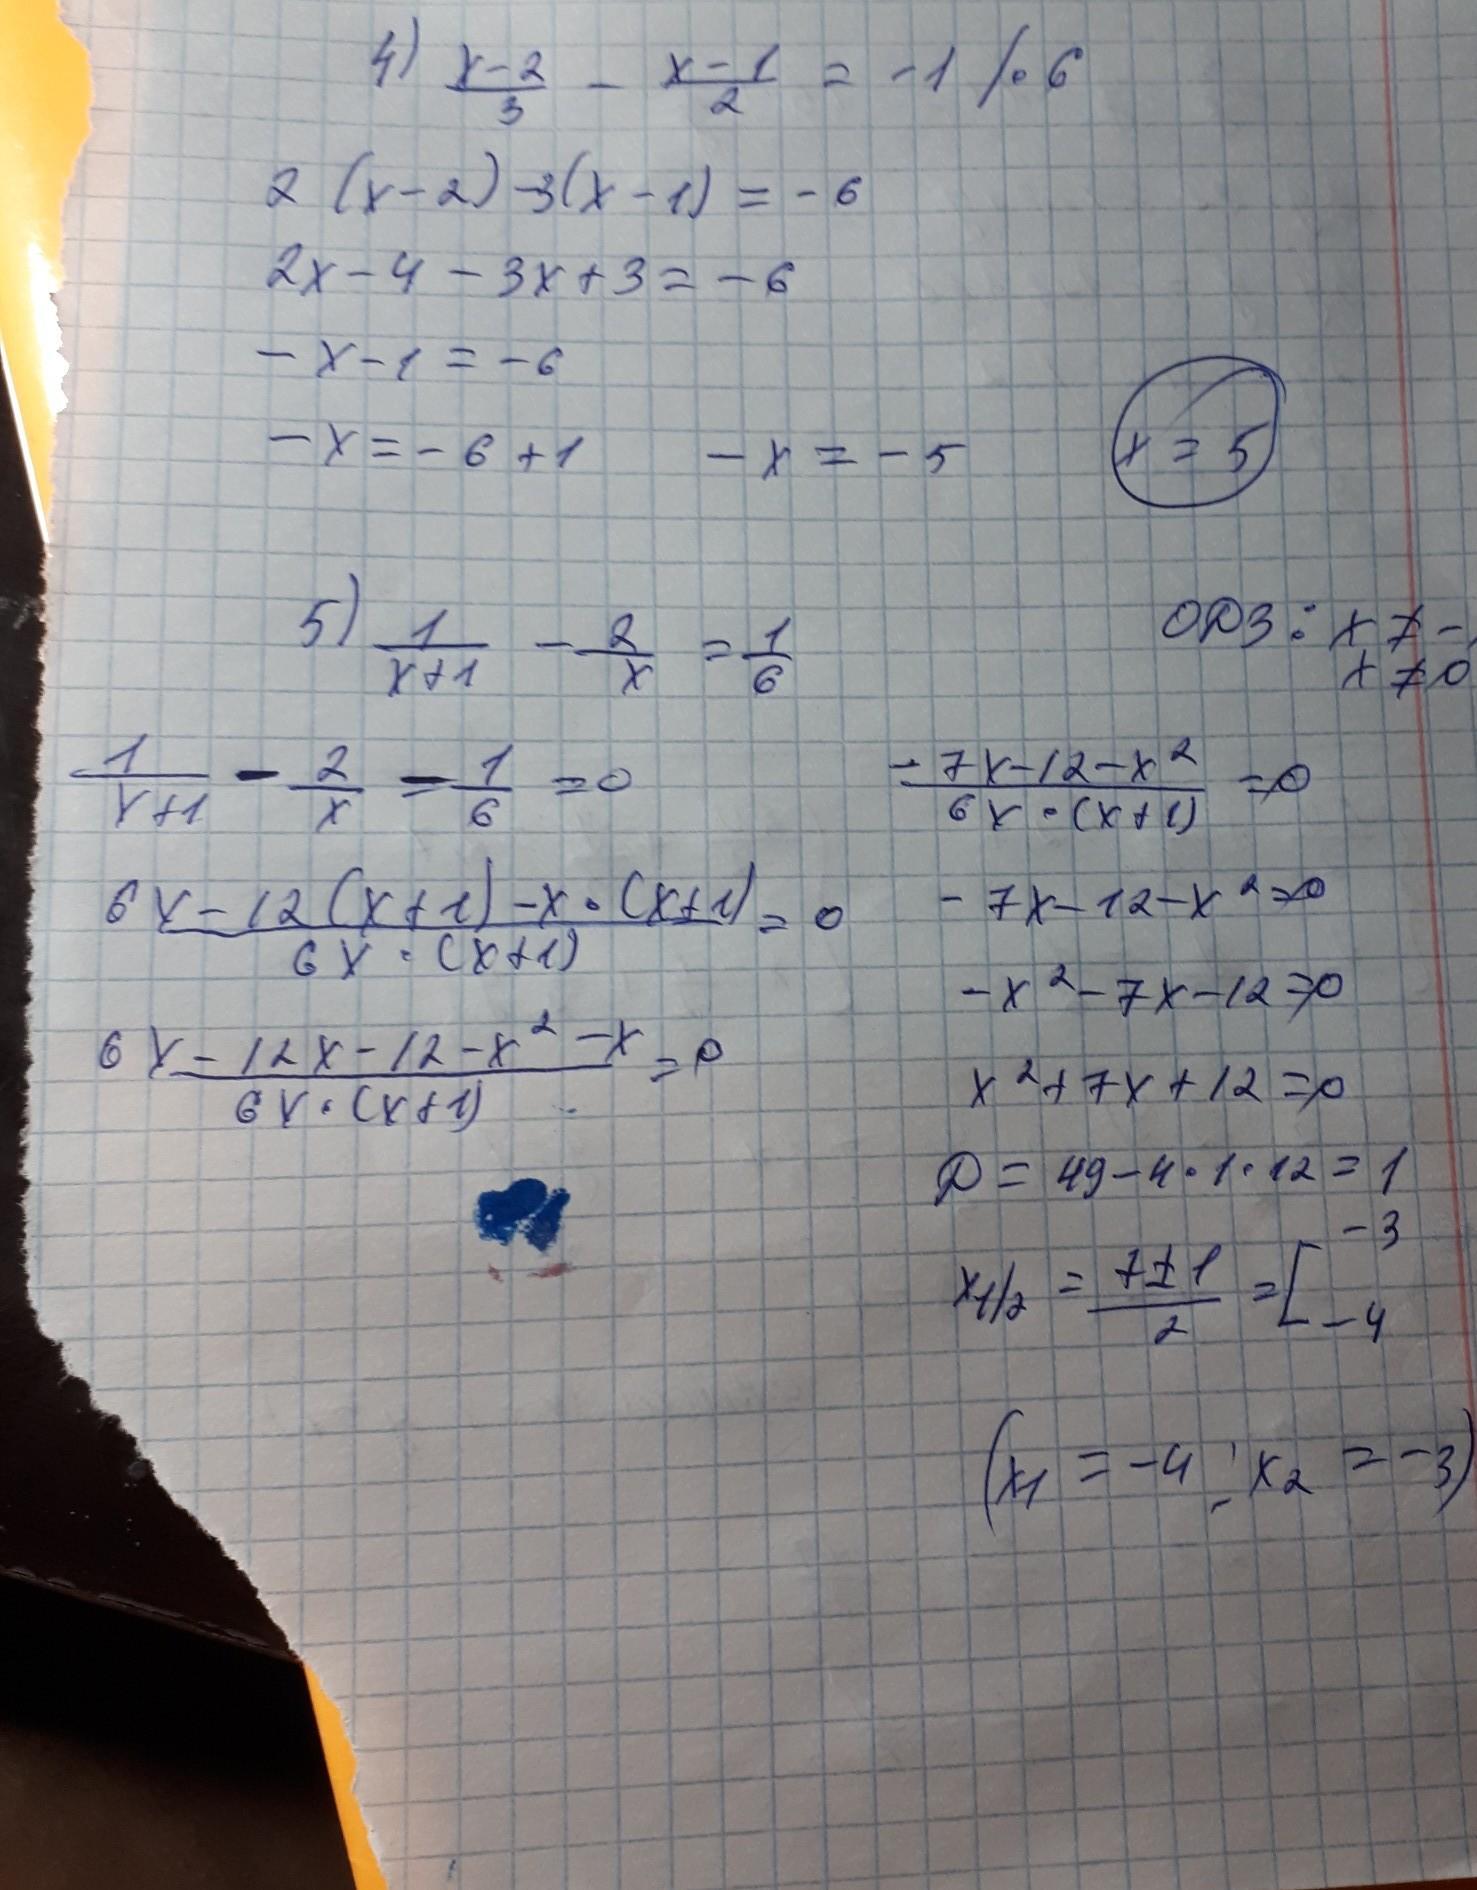 4) (x-2)/3 - (x-1)/2 = -1 /·6
2 (x-2) -3(x-1) = -6
2x-4-3x+3=-6
-x-1=-6
-x=-6+1 -x=-5 x=5
5) 1/(x+1) - 2/x = 1/6
ОДЗ: x≠-
x≠0
1/(x+1) - 2/x - 1/6 = 0
(6x-12(x+1)-x·(x+1))/(6x·(x+1)) = 0
(6x-12x-12-x²-x)/(6x·(x+1)) = 0
(-7x-12-x²)/(6x·(x+1)) = 0
-7x-12-x²=0
-x²-7x-12=0
x²+7x+12=0
D=49-4·1·12=1
x1/2 = (7±1)/2 = [ -3
-4
(x1=-4; x2=-3)